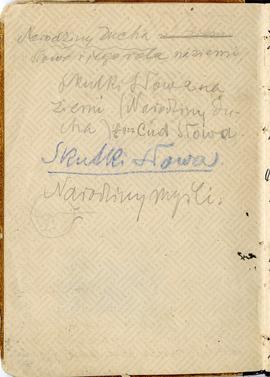 Narodziny Ducha
Słowo i jego rola na ziemi
Skutki Słowa na
ziemi (Narodziny Du-
cha) Cud Słowa.
Skutki Słowa
Narodziny myśli.